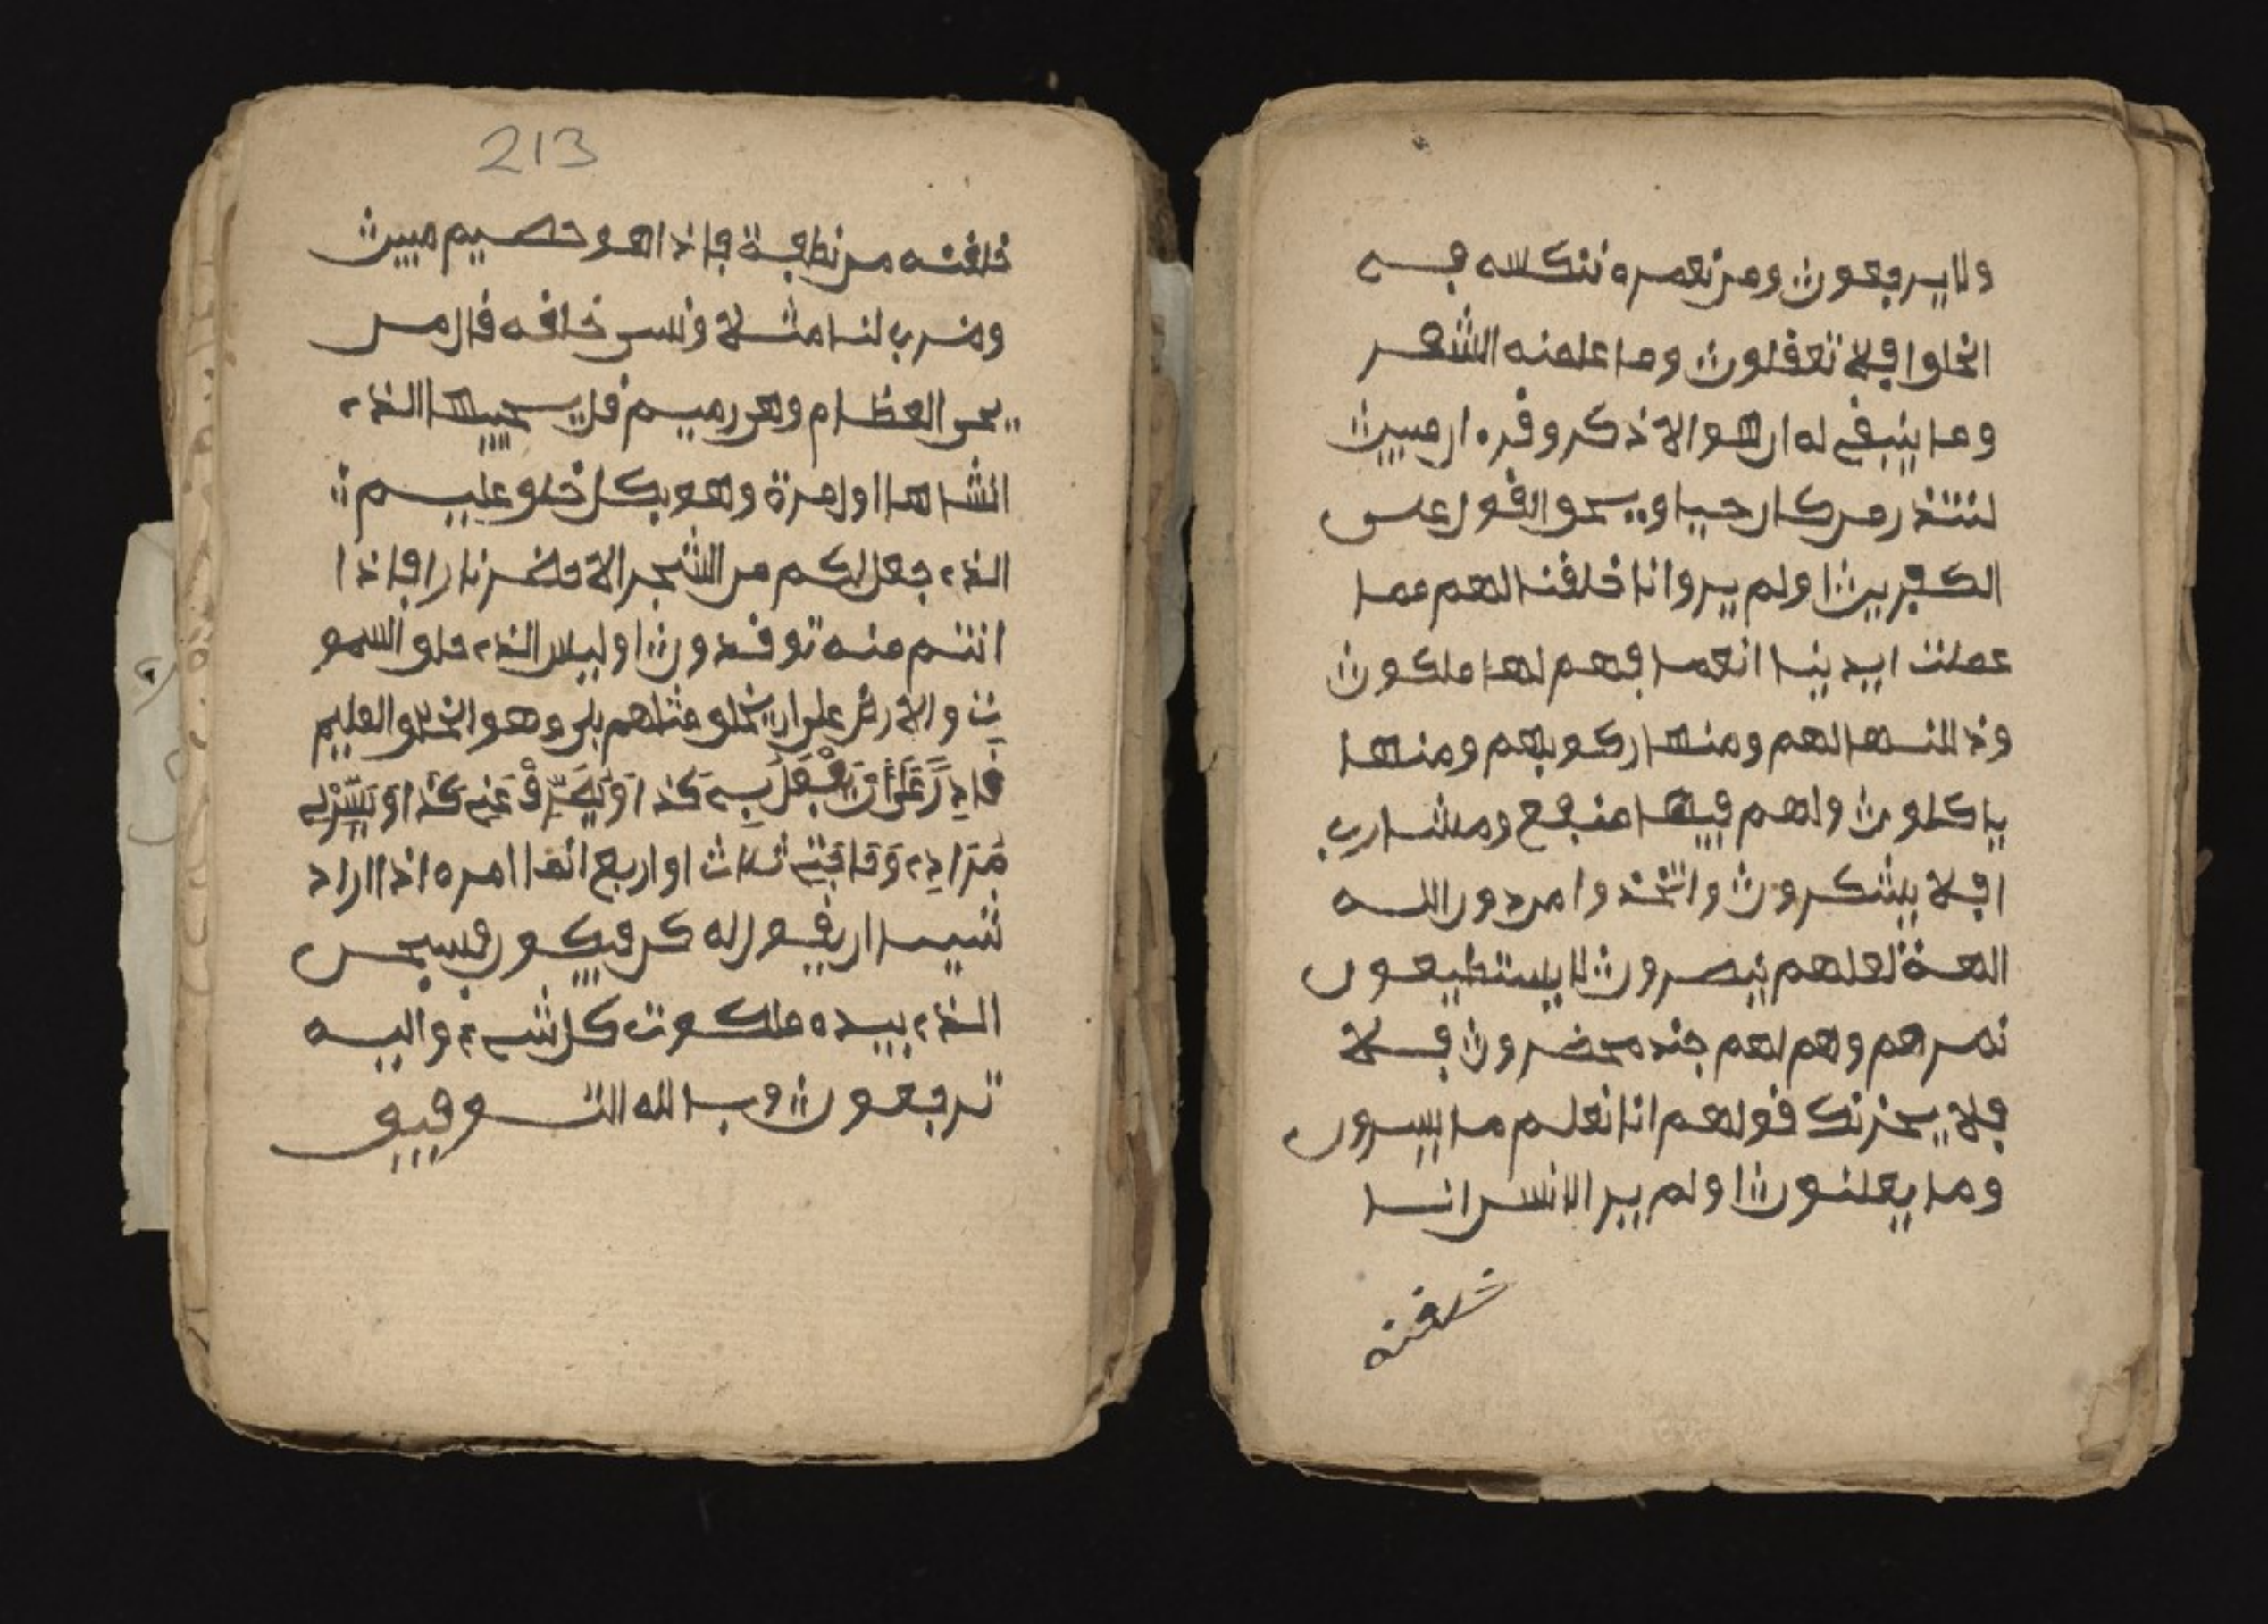 ولا يرجعون ومن نعمره ننكسه في
الخلو افلا تعقلون وما علمنه الشعر
وما ينبغي له ان هو الا ذكر وقره ان مبين
لتنذر من كان حيا ويحو القول على
الكفرين اولم يروا انا خلقنا لهم مما
عملت ايدينا انعما فهم لها ملكون
وذللنها لهم ومنها ركوبهم ومنها
ياكلون ولهم فيها منفع ومشارب
افلا يشكرون واتخذوا من دون الله
الهة لعلهم ينصرون لا يستطيعون
نصرهم وهم لهم جند محضرون فلا
فلا يحزنك قولهم انا نعلم ما يسرون
وما يعلنون اولم ير الانسن انا
خلقنه
213
خلقنه من نطفة فاذا هو خصيم مبين
وضرب لنا مثلا ونسي خلقه قال من
يحي العظام وهي رميم قل يحييها الذي
انشاها اول مرة وهو بكل خلو عليم
الذي جعل لكم من الشجر الاخضر نارا فاذا
انتم منه توقدون اوليس الذي خلو السمو
ت والارض على ان يخلو مثلهم بلى وهو الخلو العليم
قَادِرٌ عَلَى أَنْ يَفْعَلَ بِي كَذا اَوْ يَصْرِفْ عَنِّي كَذا اَوْ يَسِّرْ لِي
مُرَادِي وَحَاجَتِي ثلاث او اربع انما امره اذا اراد
شيـا ان يقول له كن فيكون فسبحن
الذي بيده ملكوت كل شيء واليه
ترجعون وبالله التوفيو